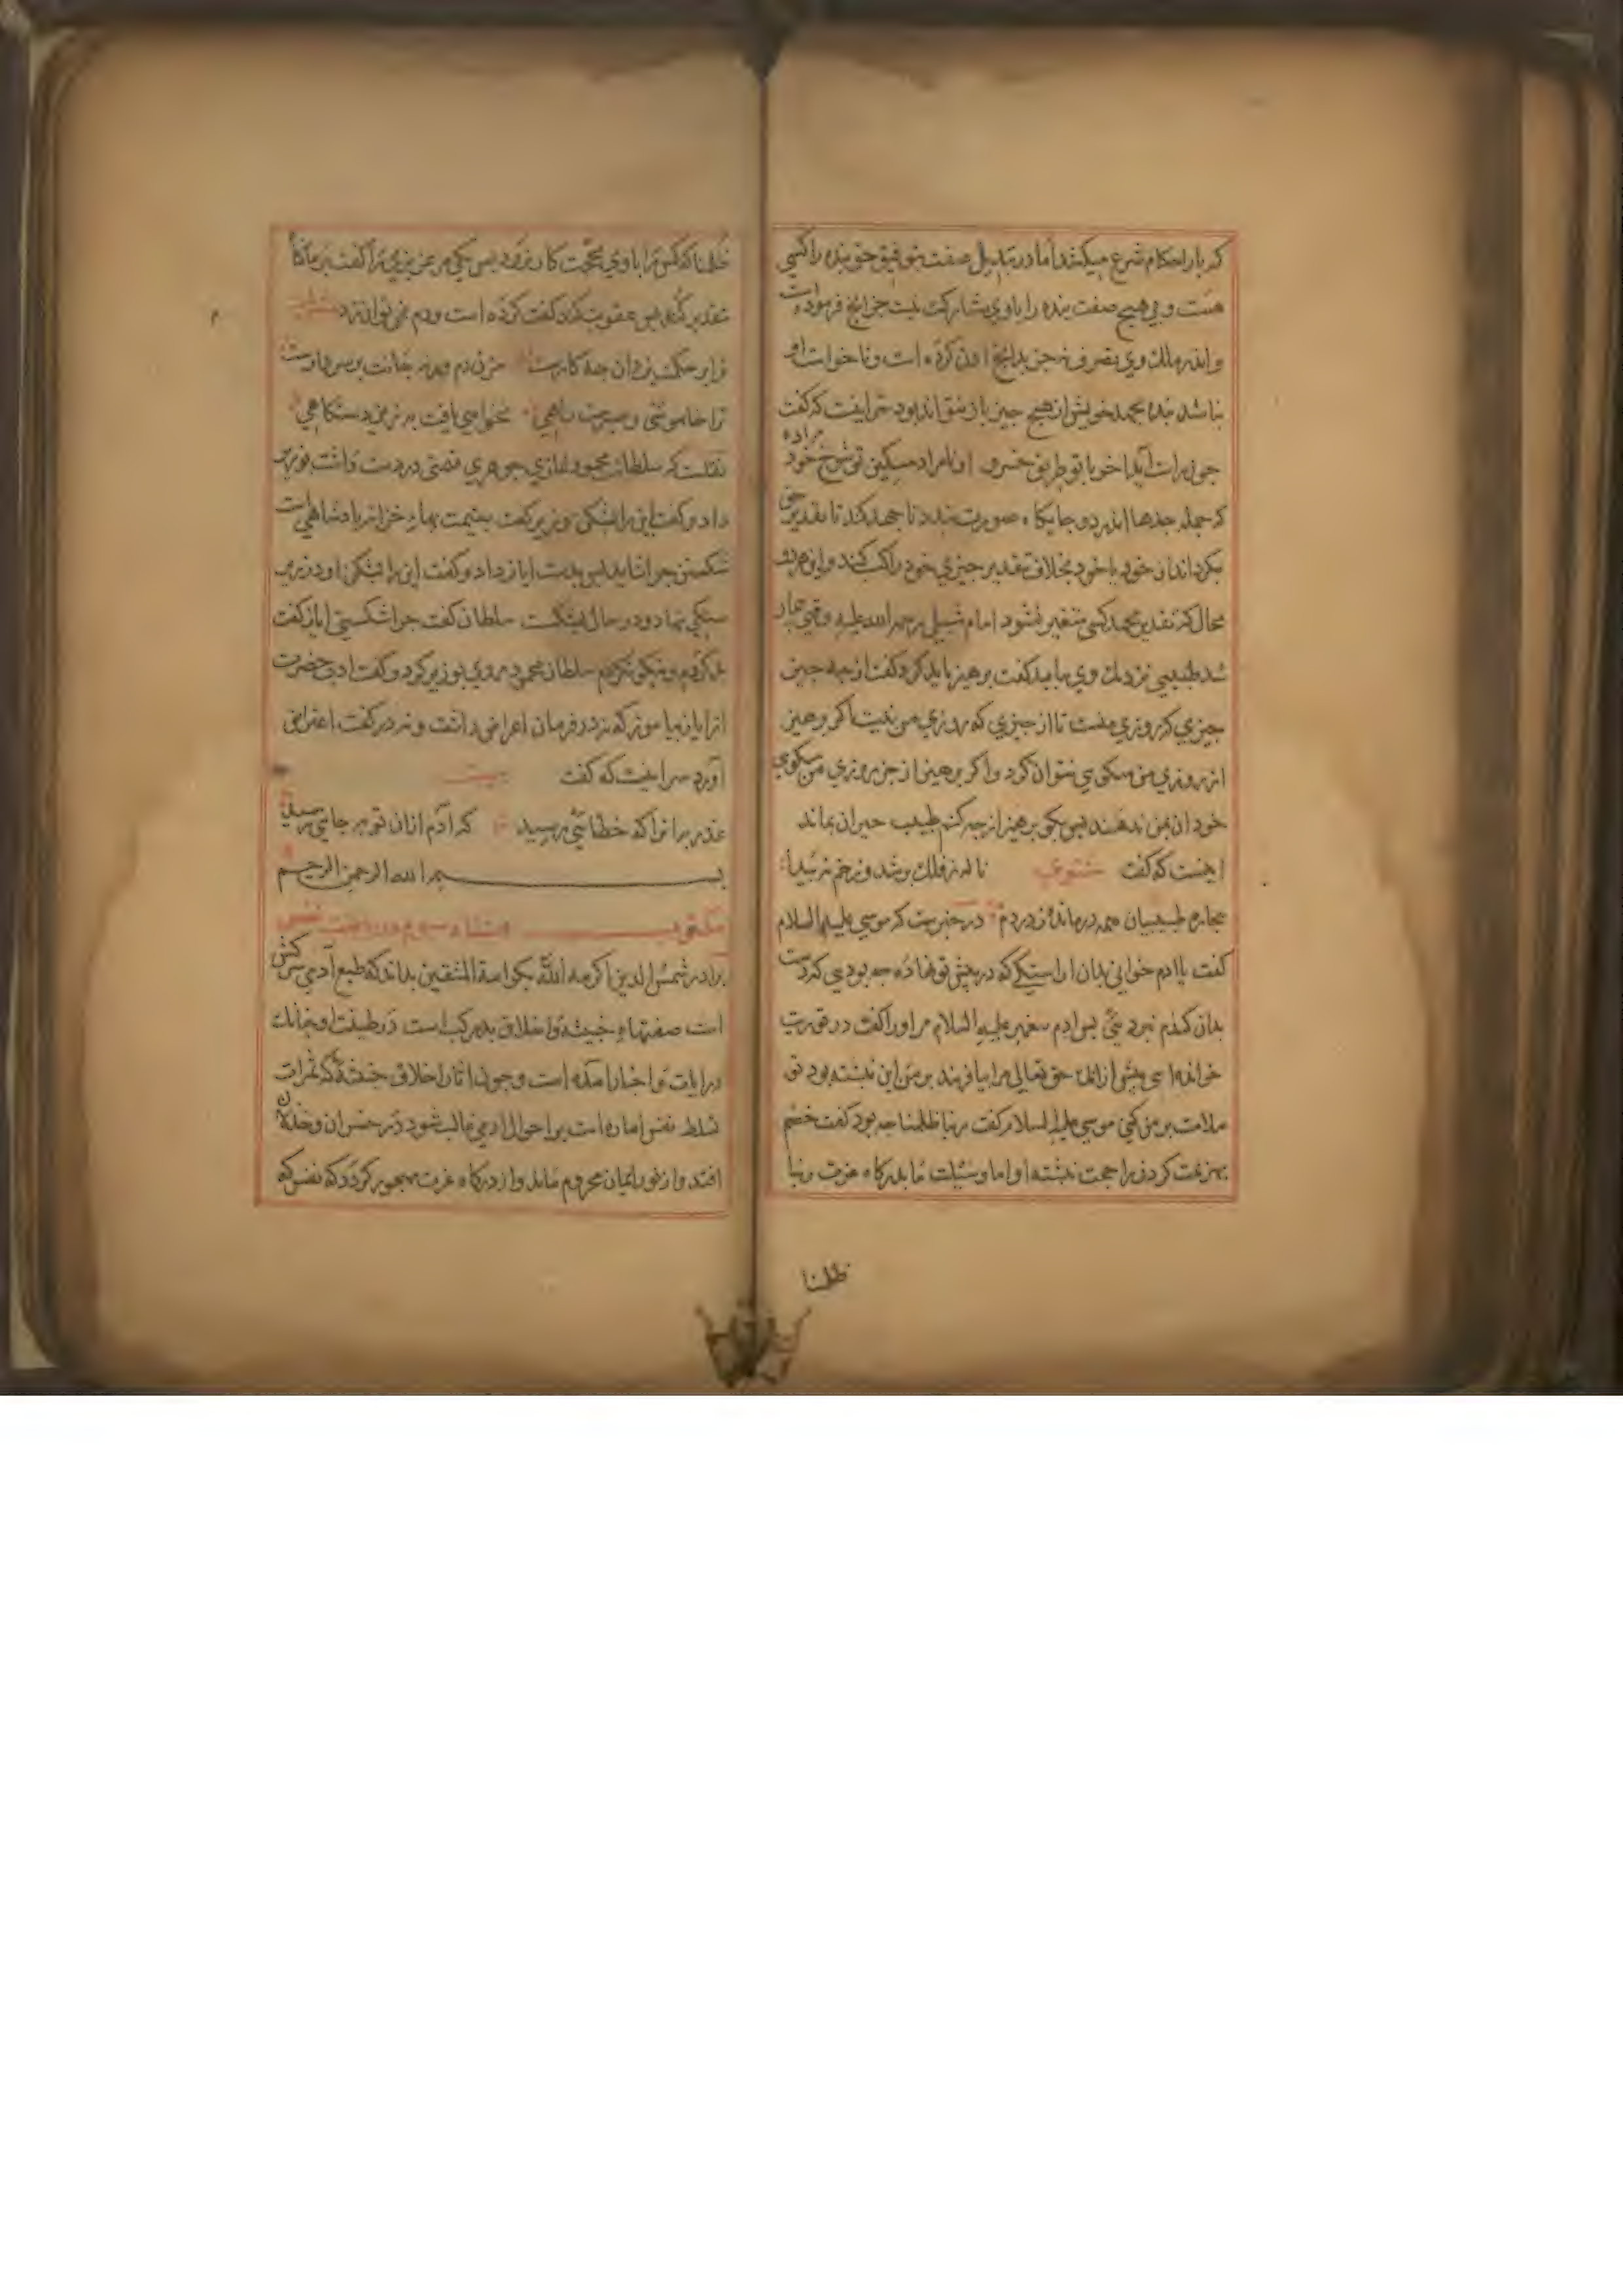 که بار احکام شرع میکشد اما در تبدیل صفت بتوفیق حق بنده را کسبی
هست و بی هیچ صفت بنده را با وی مشارکت نیست جز آنچ فرموده است
و اندر ملک وی تصرف نه جز بدانچ اذن کرده است و تا خواست او
نباشد بنده بجهد خویش از هیچ چیز باز نتواند بود شرایفت که گفت
او نامراد میکن تو شوخ خود مراده
که جمله جدها اندر دو جایگاه صورت بندد تا جهد کند تا تقدیر حق
بگرداند از خود یا خود بخلاف تقدیر چیزی خود را کسب کند و این هر دو
محال که تقدیر بجهد کسی متغیر نشود امام شبلی رحمه الله علیه وقتی بیمار
شد طبیبی نزدیک وی بیامد گفت پرهیز باید کرد گفت از چه چیز
چیزی که روزی منست تا از چیزی که روزی من نیست اگر پرهیز
از روزی من میکوی نتوان کرد و اگر پرهیز از جز روزی من میکوی
خود آن بمن ندهند پس بگو پرهیز از چه کنم طبیب حیران بماند
اینست که گفت مثنوی ناله ز فلک برشد و زخم نه پیدا
بیچاره طبیبان همه درمانده ز دردم در خبرست که موسی علیه السلام
گفت یا ادم خوانی بدان اراستگی که در پیش تو نهاده چه بودی که دست
بدان گندم نبردیی پس ادم پیغمبر علیه السلام مر او را گفت در توریت
خوانده ای پیش از انک حق تعالی مرا بیافریند بر من این نبشته بود تو
ملامت بر من کنی موسی علیه السلام گفت ربنا ظلمنا چه بود گفت خصم
بهزیمت کردن را حجت نبشته او اما وسیلت ما بدرگاه عزت ربنا
ظلمنا
ظلمنا که کس را با وی بحجت کار نرود پس یکی مر عزیزی را گفت
تقدیر کرد پس عقوبت کند گفت کرده است و دم نمی توان زد
مزن دم
ترا خاموشی و صبرست راهی نخواهی یافت به زین دستگاهی
نقلست که سلطان محمود غازی جوهری قیمتی در دست داشت بوزیر
داد و گفت این را بشکن وزیر گفت بقیمت بهاء خزانه پادشاهی است
شکستن چرا شاید پس بدست ایاز داد و گفت این را بشکن او در زیر
سنگی نهاد و در حال بشکست سلطان گفت چرا شکستی ایاز گفت
بد کردم و نیکو نکردم سلطان محمود روی بوزیر کرد و گفت ادب حضرت
از ایاز بیاموز که نه در فرمان اعراض دانست و نه در گفت اعتراض
آورد سراینست که گفت بیت
عذر برانرا که خطائی رسید که ادم ازان عذر بجایی رسید
بسم الله الرحمن الرحیم
مکتوب هشتاد و سوم در ریاضت نفس
برادر شمس الدین اکرمه الله بکرامة المتقین بداند که طبع آدمی سرکش
است صفتهاء خبیثه و اخلاق بد مرکب است در طینت او چنانک
در ایات و اخبار امده است و چون اثار اخلاق خبیثه که ثمرات
تسلط نفس اماره است بر احوال ادمی غالب شود در خسران و خذلان
افتد و از نور ایمان محروم ماند و از درگاه عزت مهجور گردد که نفس که